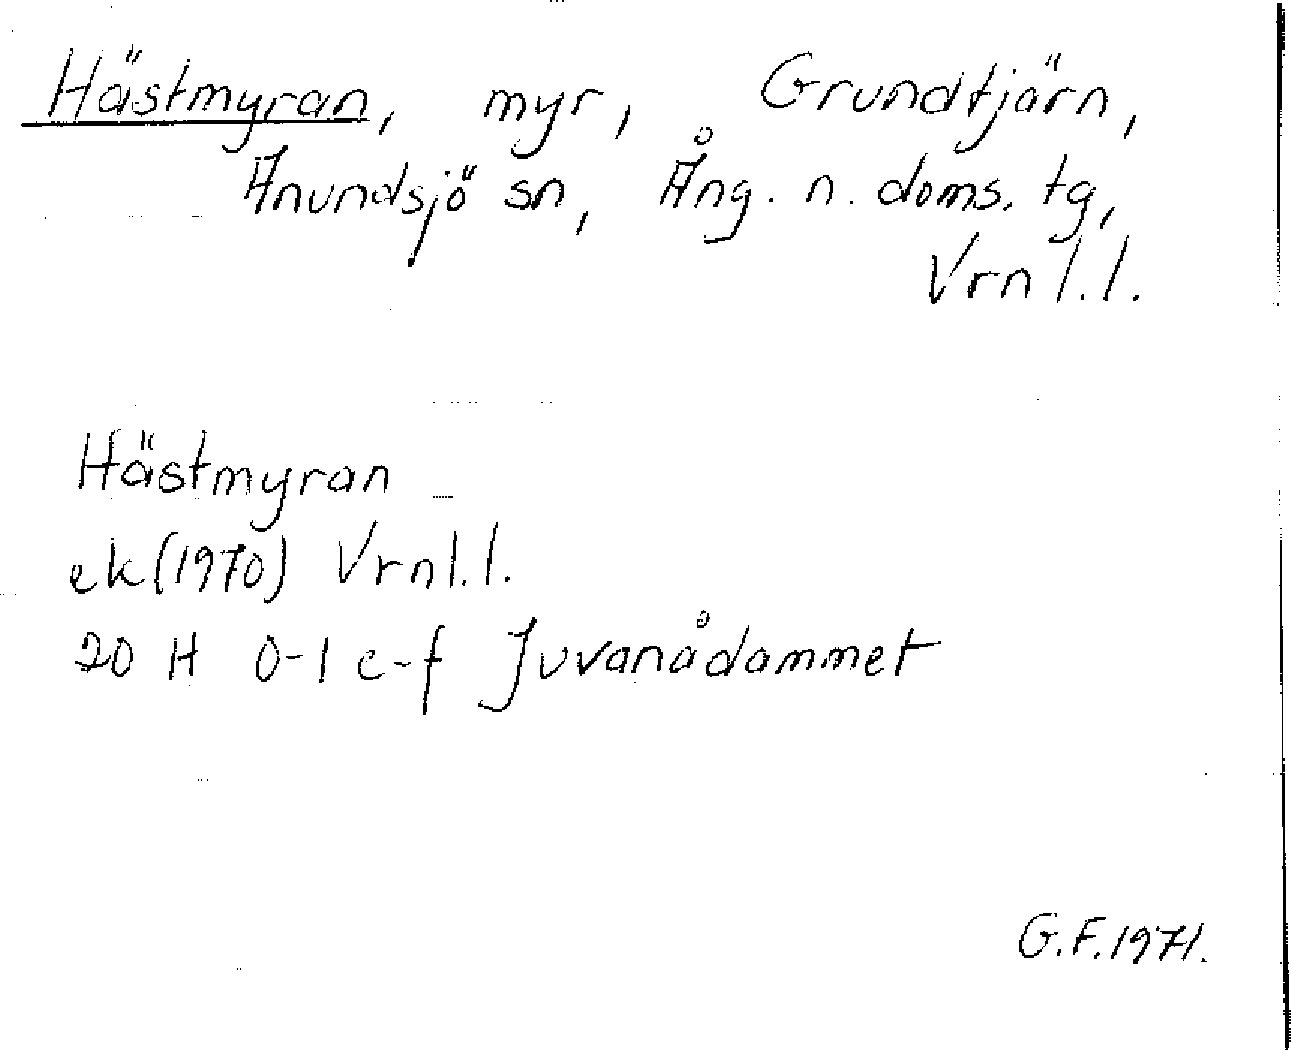 Hästmyran, myr, Grundtjärn,
Anundsjö sn, Ång. n. doms. tg,
Vrn l.l.
Hästmyran
ek (1970) Vrn l.l.
20 H 0-1 e-f Juvanådammet
G.F. 1971.